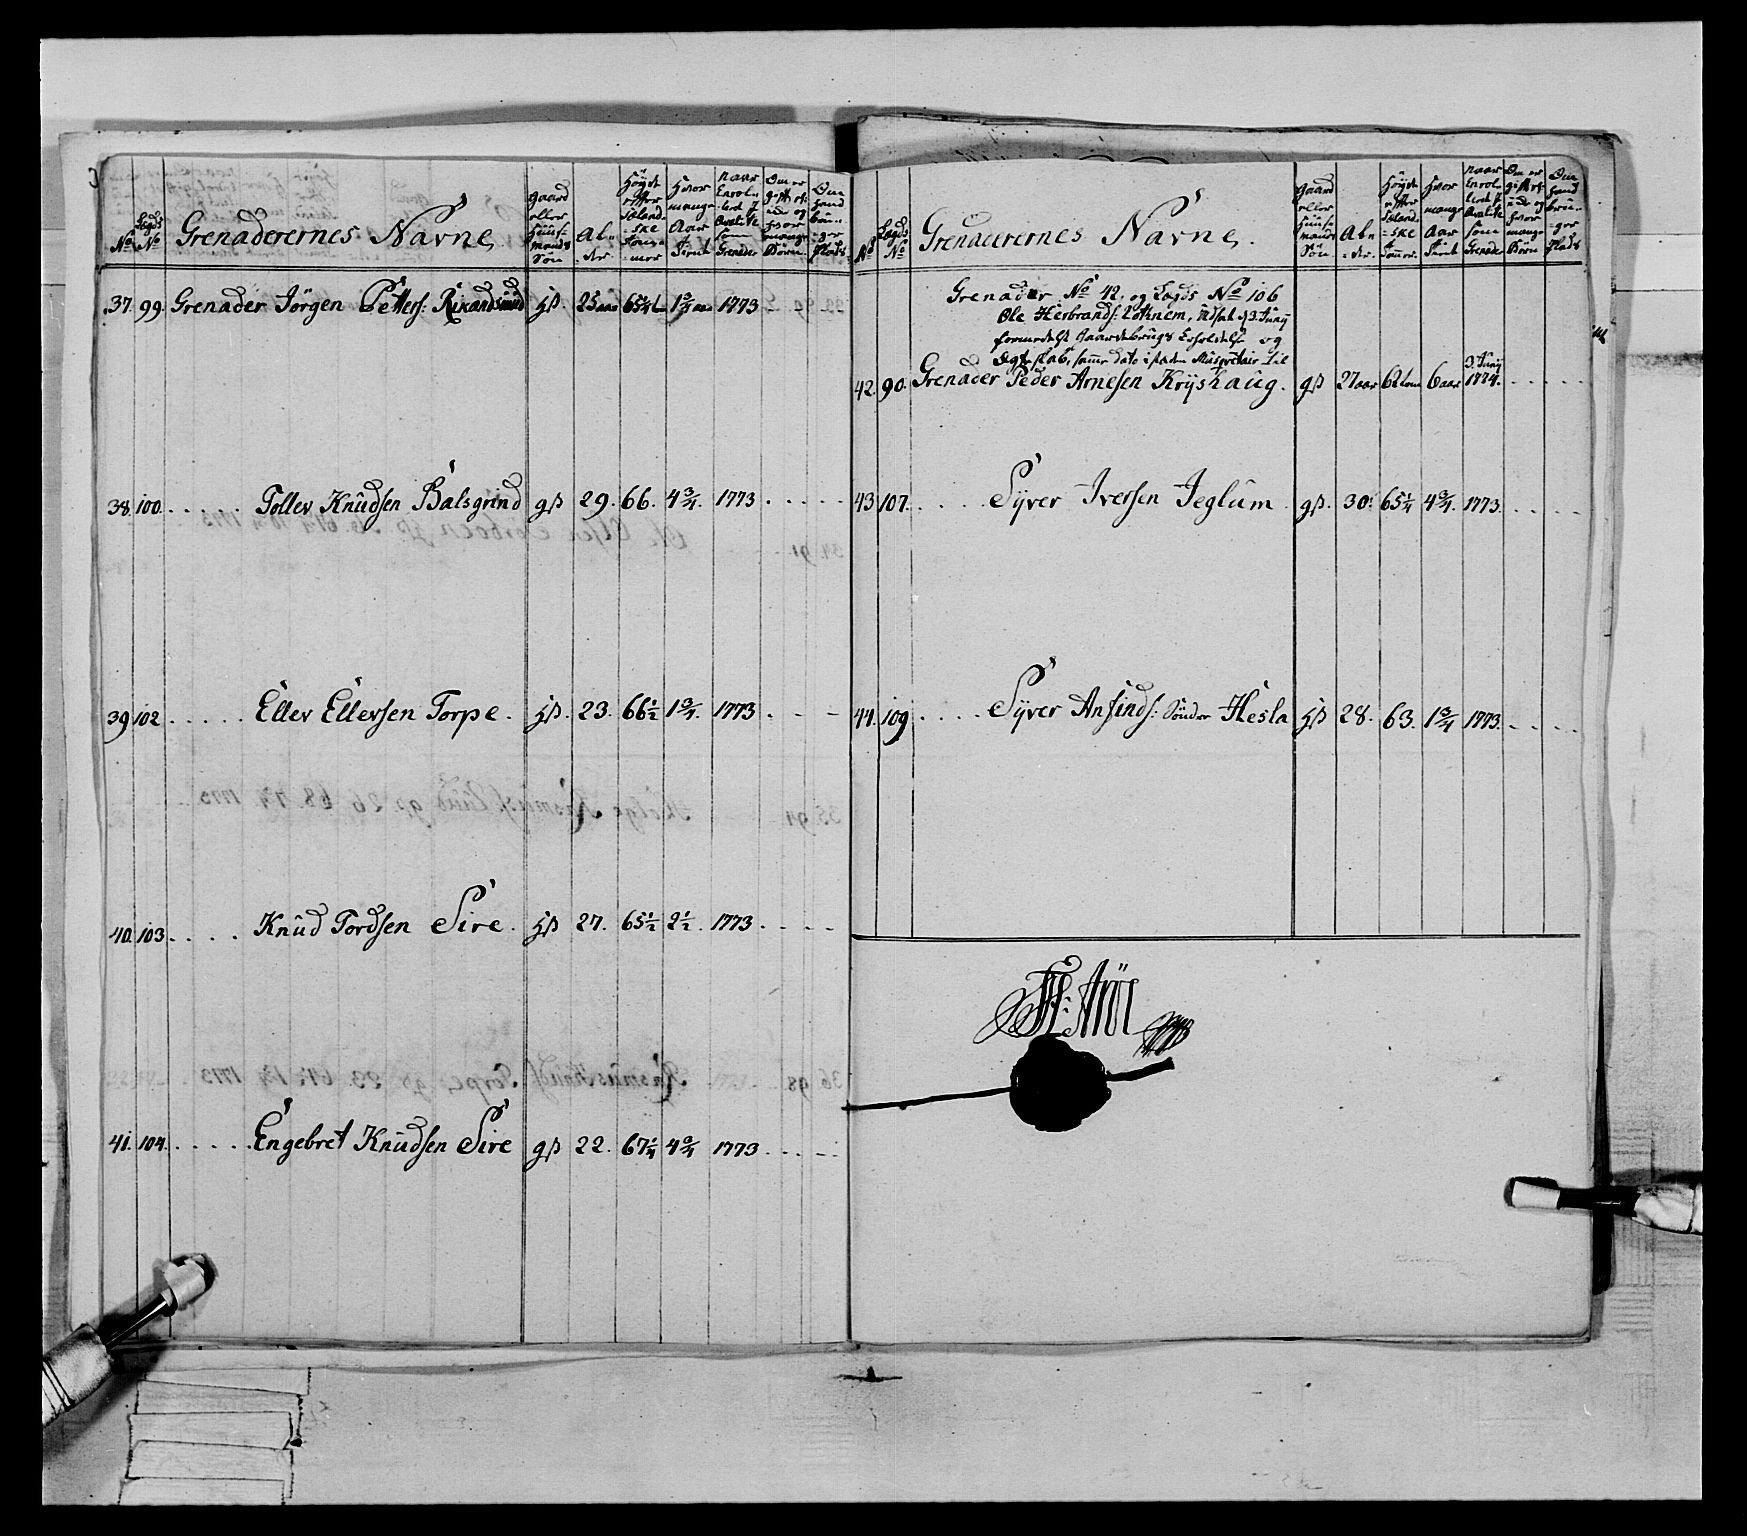 No
Lægds No
Grenaderernes Navne
gaard eller Huus- mands Søn
Al- der
Høyde efter Sæland- ske Tom- mer
Hvor mange Aar Tient
naar Enrol- lerd
som Grenader
Om er gift
og hvor mange Børn
Om hand
Plads
37. 99. Grenader Jörgen Petters: hß. 25 aar 1 3/4 aar 1773
38. 100. . . . . . Tollev Knudsen Balsgrind gß 29. 66. 4 3/4. 1773 . . . . .
39 102 . . . . . Ellev Ellevsen Torpe. hß. 23. 66 1/2 1 3/4. 1773 . - -
40. 103. . . . . Knud Tordsen Sire. hß 27. 65 1/2 2 1/2. 1773 . . . . .
41. 104. . . . . . Engebret Knudsen Sire gß 22. 67 1/4 4 3/4 1773 . . . . .
No
Lægds No
Grenaderernes Navne.
gaard eller Huus- mands Søn
Al- der.
Høyde efter Sæland- ske Tommer.
Hvor mange Aar Tient
naar Enrol- lerd
som Grenader
Om er gift
og hvor mange Børn
Om hand
Plads
Grenader No 42. og Lægds No 106
Ole Herbrands: 3 Junij
formedelst Gaardebrugs og
samme dato isteden Musqvetair til
42. 90. Grenader Peder Arnesen Kryshaug. gß 27 aar 62 tom 6 aar 3 Junij 1774. . . . . .
43 107. . . . . Syver Iversen Jeglum gß. 30. 65 1/4 4 3/4. 1773. . . . . .
44. 109 . . . . Syver Anfinds: Sønder Hesla hß 28. 63. 1 3/4 1773. . . . . .